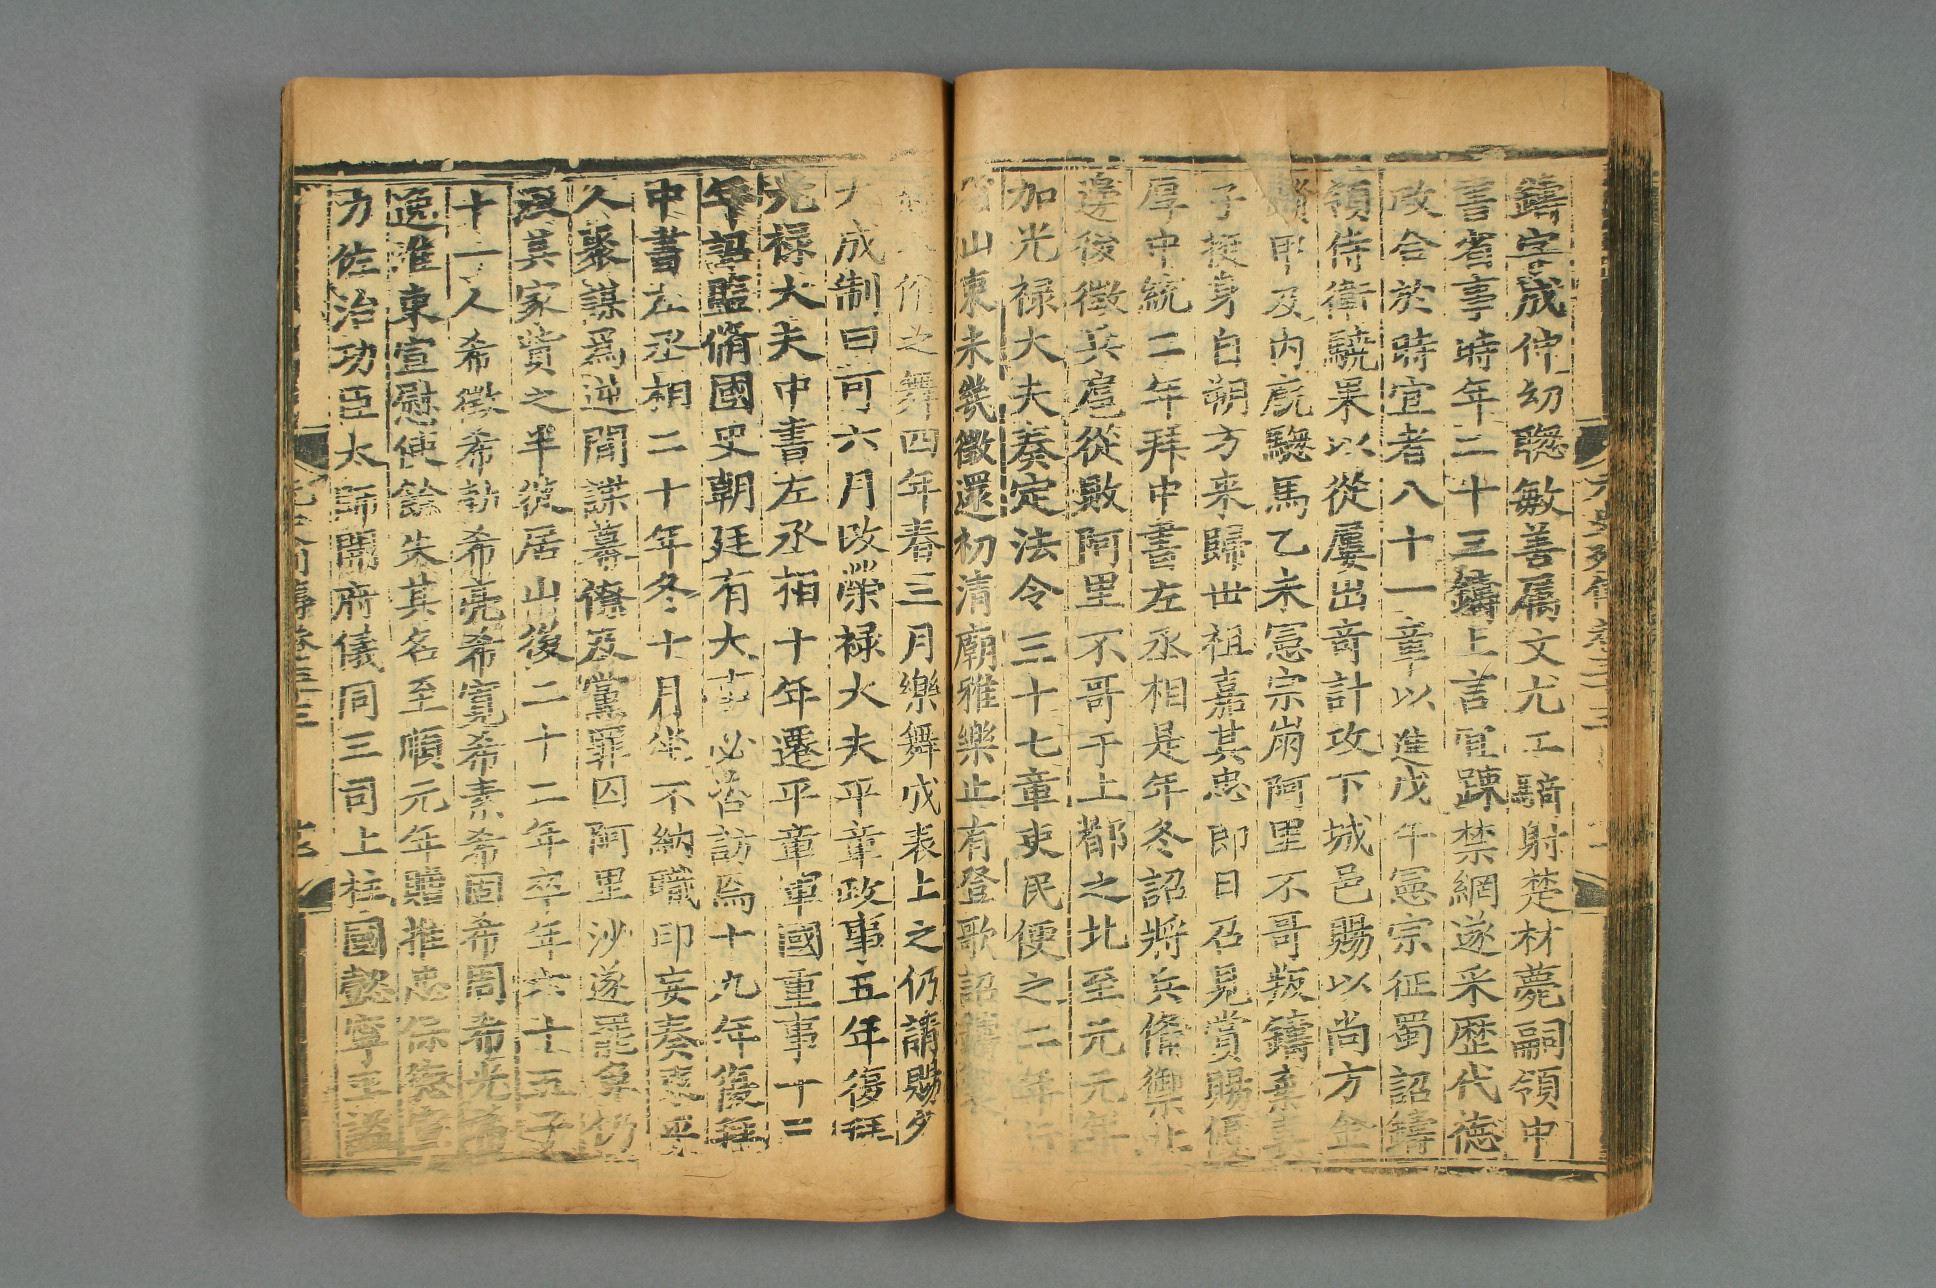 鑄字成仲幼聰敏善屬文尤工騎射楚材薨嗣領中
書省事時年二十三鑄上言宜踈禁網遂采歴代德
政合於時宜者八十一章以進戊午憲宗征蜀詔鑄
領侍衛驍果以從屢出竒計攻下城邑賜以尚方金
鏁甲及内廐驄馬乙未憲宗崩阿里不哥叛鑄棄妻
子挺身自朔方来歸世祖嘉其忠即日召見賞賜優
厚中統二年拜中書左丞相是年冬詔將兵僃禦北
邊後徴兵扈從敗阿里不哥于上都之北至元元年
加光禄大夫奏定法令三十七章吏民便之二年行
山東未幾徵還初清廟雅樂止有登歌詔鑄製
備之舞四年春三月樂舞成表上之仍請賜名
大成制曰可六月改榮禄大夫平章政事五年復拜
光禄大夫中書左丞相十年遷平章軍國重事十二
年詔監脩國史朝廷有大事必咨訪焉十九年復拜
中書左丞相二十年冬十月坐不納職印妄奏東平
人聚謀爲逆間諜幕僚及黨罪囚阿里沙遂罷免仍
沒其家貲之半徙居山後二十二年卒年六十五子
十一人希徵希勃希亮希寛希素希固希周希光希
逸淮東宣慰使餘失其名至順元年贈推忠保德宣
力佐治功臣太師開府儀同三司上柱國懿寧王謚
元史列傳卷三十三
元史列傳卷三十三